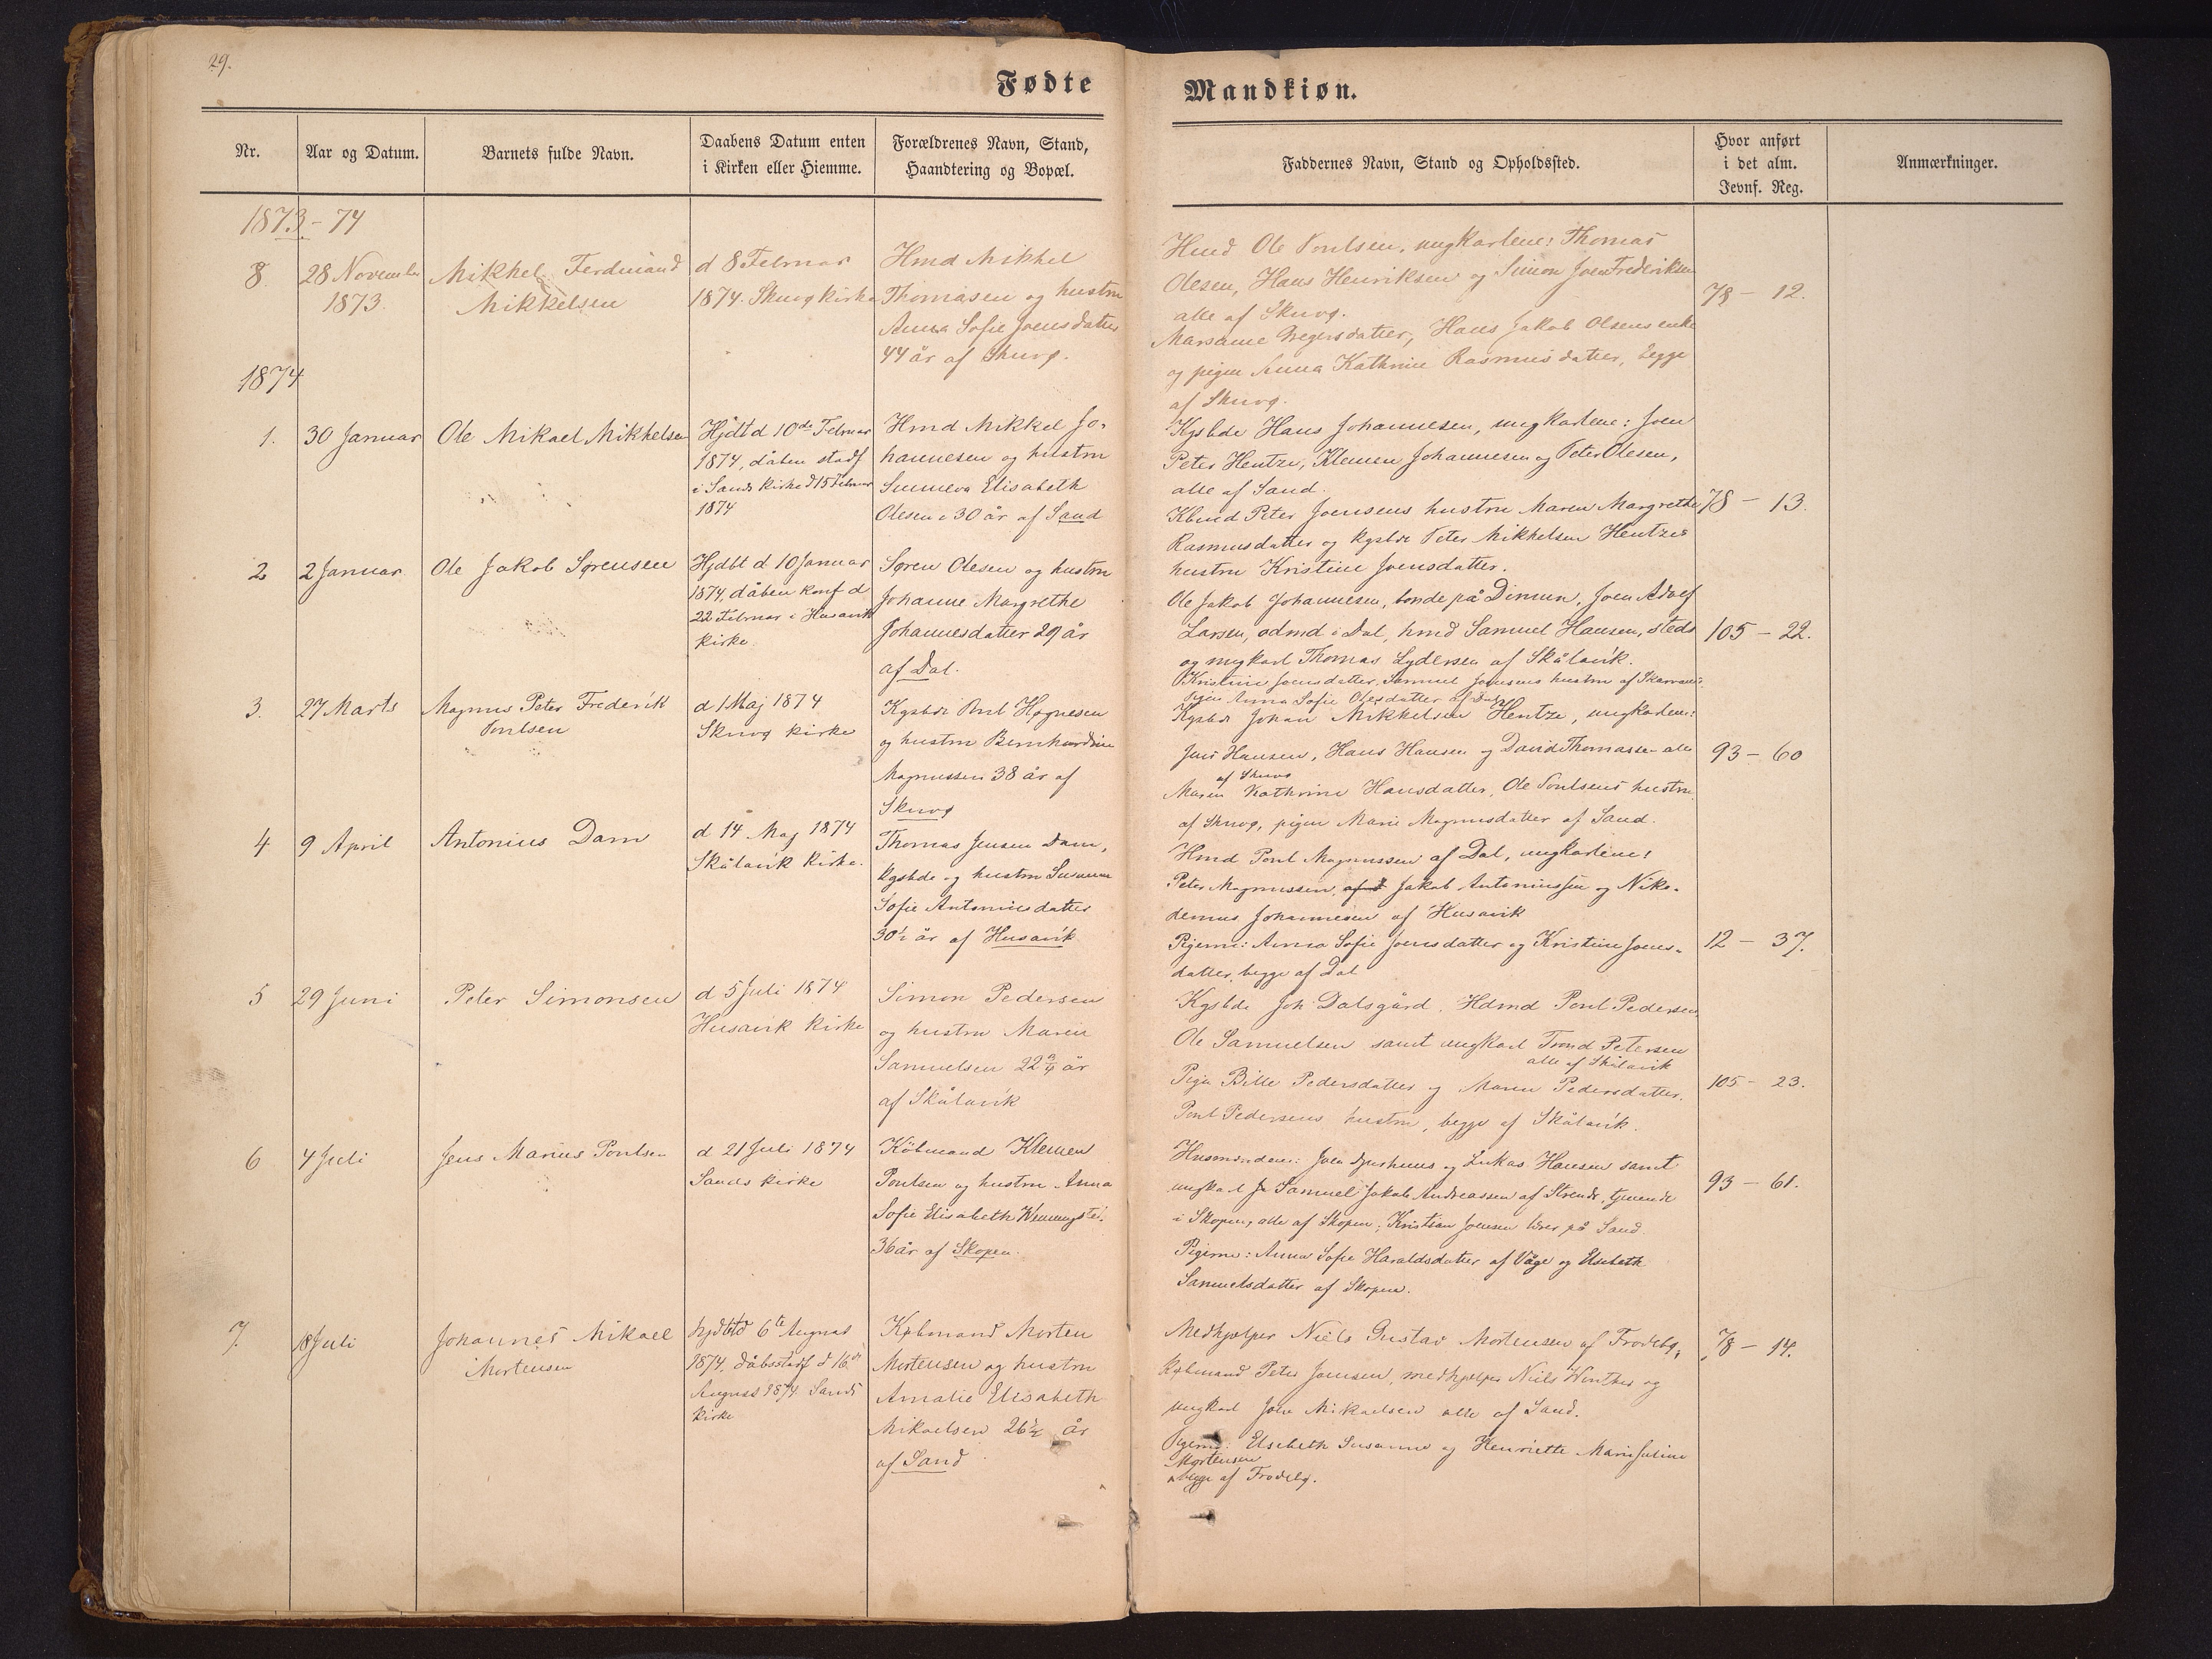 29.
Fødte
Mandkiøn.
Nr.
Aar og Datum.
Barnets fulde Navn.
Daabens Datum enten
i Kirken eller Hiemme.
Forældrenes Navn, Stand,
Haandtering og Bopæl.
Faddernes Navn, Stand og Opholdssted.
Hvor anført
i det alm.
Jevnf. Reg.
Anmærkninger.
1873-74
8.
28 November
1873.
Mikkel Ferdinand
Mikkelsen
d 8 Februar
1874. Skuvø kirke
Hmd Mikkel
Thomasen og hustru
Anna Sofie Joensdatter
44 år af Skuvø.
Hmd Ole Poulsen, ungkarlene: Thomas
Olesen, Hans Henriksen og Simon Joen Frederiksen
alle af Skuvø.
Marsanne Gregersdatter, Hans Jakob Olsens enke
og pigen Anna Kathrine Rasmusdatter, begge
af Skuvø.
78 - 12.
1874
1.
30 Januar
Ole Mikael Mikkelsen
Hjdt d 10de Februar
1874, dåben stadf
i Sands kirke d 15 Februar
1874
Hmd Mikkel Jo-
hannesen og hustru
Sunneva Elisabeth
Olesen 30 år af Sand
Kgsbde Hans Johannesen, ungkarlene: Joen
Peter Hentze, Klemen Johannesen og Peter Olesen,
alle af Sand.
Kbmd Peter Joensens hustru Maren Margrethe
Rasmusdatter og kgsbde Peter Mikkelsen Hentzes
hustru Kristine Joensdatter.
78 - 13.
2
2 Januar
Ole Jakob Sørensen
Hjdbt d 10 Januar
1874, dåben konf d
22 Februar i Husavik
kirke.
Søren Olesen og hustru
Johanne Margrethe
Johannesdatter 29 år
af Dal.
Ole Jakob Johannesen, bonde på Dimun, Joen Adolf
Larsen, odmd i Dal, hmd Samuel Hansen, steds
og ungkarl Thomas Lydersen af Skålavik.
Kristine Joensdatter, Samuel Joensens hustru af
Pigen Anna Sofie Olesdatter af Dal
105 - 22.
3.
27 Marts
Magnus Peter Frederik
Poulsen
d 1 Maj 1874
Skuvø kirke
Kgsbde Poul Høgnesen
og hustru Bernhardine
Magnussen 38 år af
Skuvø
Kgsbde Johan Mikkelsen Hentze, ungkarlene:
Jens Hansen, Hans Hansen og David Thomassen alle
af Skuvø
Maren Kathrine Hansdatter, Ole Poulsens hustru
af Skuvø, pigen Marie Magnusdatter af Sand.
93 - 60
4
9 April
Antonius Dam
d 14 Maj 1874
Skålavik kirke.
Thomas Jensen Dam,
kgsbde og hustru Susanne
Sofie Antoniusdatter
30½ år af Husavik
Hmd Poul Magnussen af Dal, ungkarlene:
Peter Magnussen, Jakob Antoniussen og Niko-
demus Johannesen af Husavik
Pigerne: Anna Sofie Joensdatter og Kristine Joens-
datter, begge af Dal
12 - 37.
5
29 Juni
Peter Simonsen
d 5 Juli 1874
Husavik kirke
Simon Pedersen
og hustru Maren
Samuelsen 22¾ år
af Skålavik
Kgsbde Joh Dalsgård. Hdmd Poul Pedersen,
Ole Samuelsen samt ungkarl Trond Petersen
alle af Skålavik
Pige Bille Pedersdatter og Maren Pedersdatter,
Poul Pedersens hustru, begge af Skålavik.
105 - 23.
6
4 Juli
Jens Marius Poulsen
d 21 Juli 1874
Sands kirke
Köbmand Klemen
Poulsen og hustru Anna
Sofie Elisabeth
36 år af Skopen.
Husmændene: Joen Djurhuus og Lukas Hansen samt
ungkarl Samuel Jakob Andreassen af Strende, tjenende
i Skopen, alle af Skopen; Kristian Joensen lærer på Sand.
Pigerne: Anna Sofie Haraldsdatter af Våge og Elsebeth
Samuelsdatter af Skopen.
93 - 61.
7.
18 Juli
Johannes Mikael
Mortensen
hjdbt d 6te August
1874. dåbsstadf d 16de
August 1874 Sands
kirke
Købmand Morten
Mortensen og hustru
Amalie Elisabeth
Mikaelsen 26½ år
af Sand
Medhjælper Niels Gustav Mortensen af Frodebø,
Købmand Peter Joensen, medhjælper Niels Winther og
ungkarl Joen Mikaelsen alle af Sand.
Pigerne: Elsebeth Susanne og Henriette Marie Juline
Mortensen
begge af Frodebø.
78 - 14.